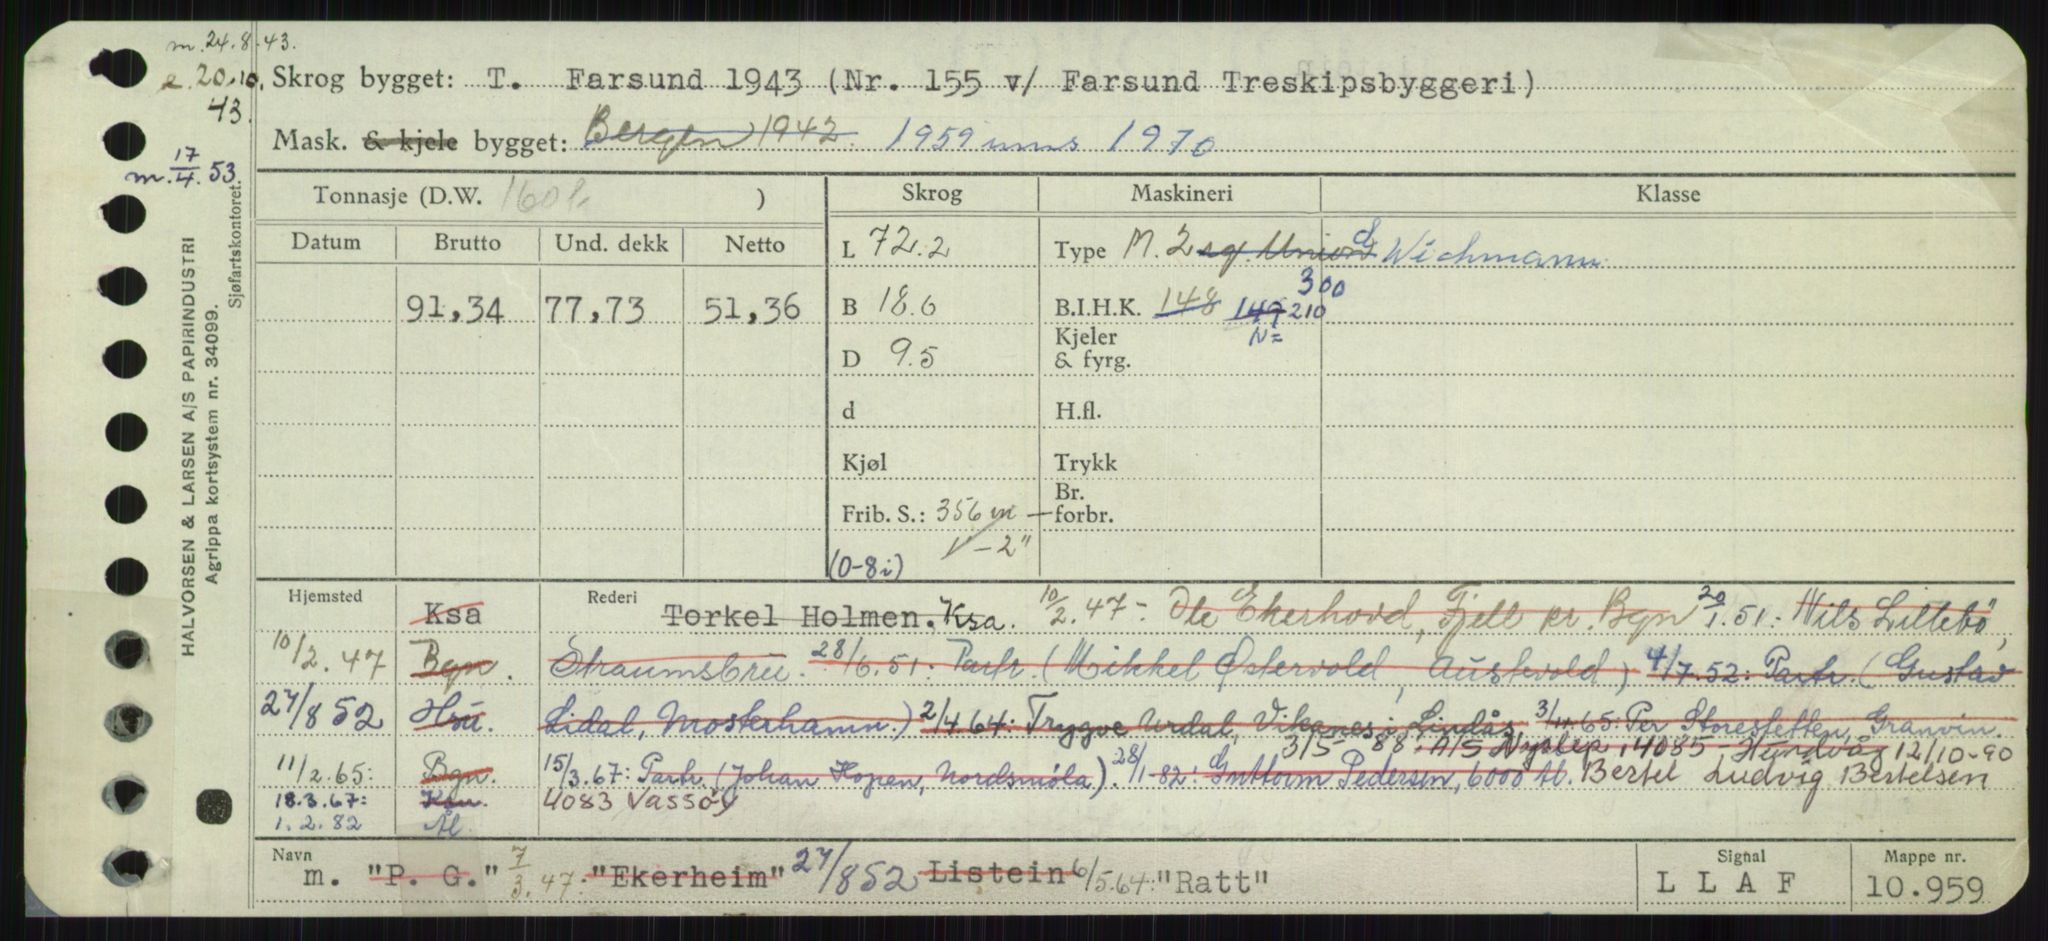 m. 24.8.43.
e. 20.10.
43.
Skrog bygget: T. Farsund 1943 (Nr. 155 v/ Farsund Treskipsbyggeri)
Mask. & kjele bygget: Bergen 1942. 1959 1970
m. 17/4. 53
HALVORSEN & LARSEN A/S PAPIRINDUSTRI
Agrippa kortsystem nr. 34099.
Sjøfartskontoret.
Tonnasje (D.W. 160 ) Skrog Maskineri Klasse
Datum Brutto Und. dekk Netto L 72.2 Type M. 2 sq. Union Wichmann
300
91,34 77,73 51,36 B 18.6 B.I.H.K. 148 149 210
N=
D 9.5 Kjeler & fyrg.
d H.fl.
Kjøl Trykk
Frib. S.: 356 m — Br. forbr.
1'-2"
(0-8i)
Hjemsted Ksa Rederi Torkel Holmen, Ksa. 10/2.47- Ole Ekerhovd, Fjell pr. Bgn 20/1.51: Nils Lillebö,
10/2.47 Bgn. Straumsbru. 28/6.51: Partr. (Mikkel Østervold, Austevold) 4/7.52: Partr. (Gustav
27/8 52 Hsu. Lidal, Mosterhamn.) 2/4.64: Trygve Urdal, Vikanes i Lindås, 3/11.65: Per Storestetten, Granvin.
3/5-88: A/S Nyslep, 4085 Hundvåg 12/10-90
11/2.65: Bgn. 15/3.67: Partr. (Johan Hopen, Nordsmöla). 28/1-82: Guttorm Pedersen, 6000 Ål. Bertel Ludvig Bertelsen
18.3.67: Ksu. 4083 Vassøy
1.2.82 Ål.
Navn m. "P. G." 7/3.47: "Ekerheim" 27/8 52 Listein 6/5.64: "Ratt"
Signal L L A F
Mappe nr. 10.959